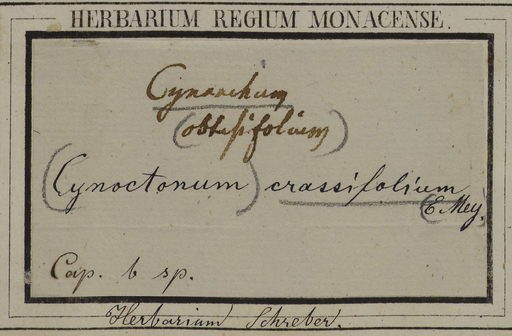 HERBARIUM REGIUM MONACENSE.
Cynanchum
(obtusifolium)
(Cynoctonum) crassifolium
(E. Mey.)
Cap. b sp.
Herbarium Schreber.